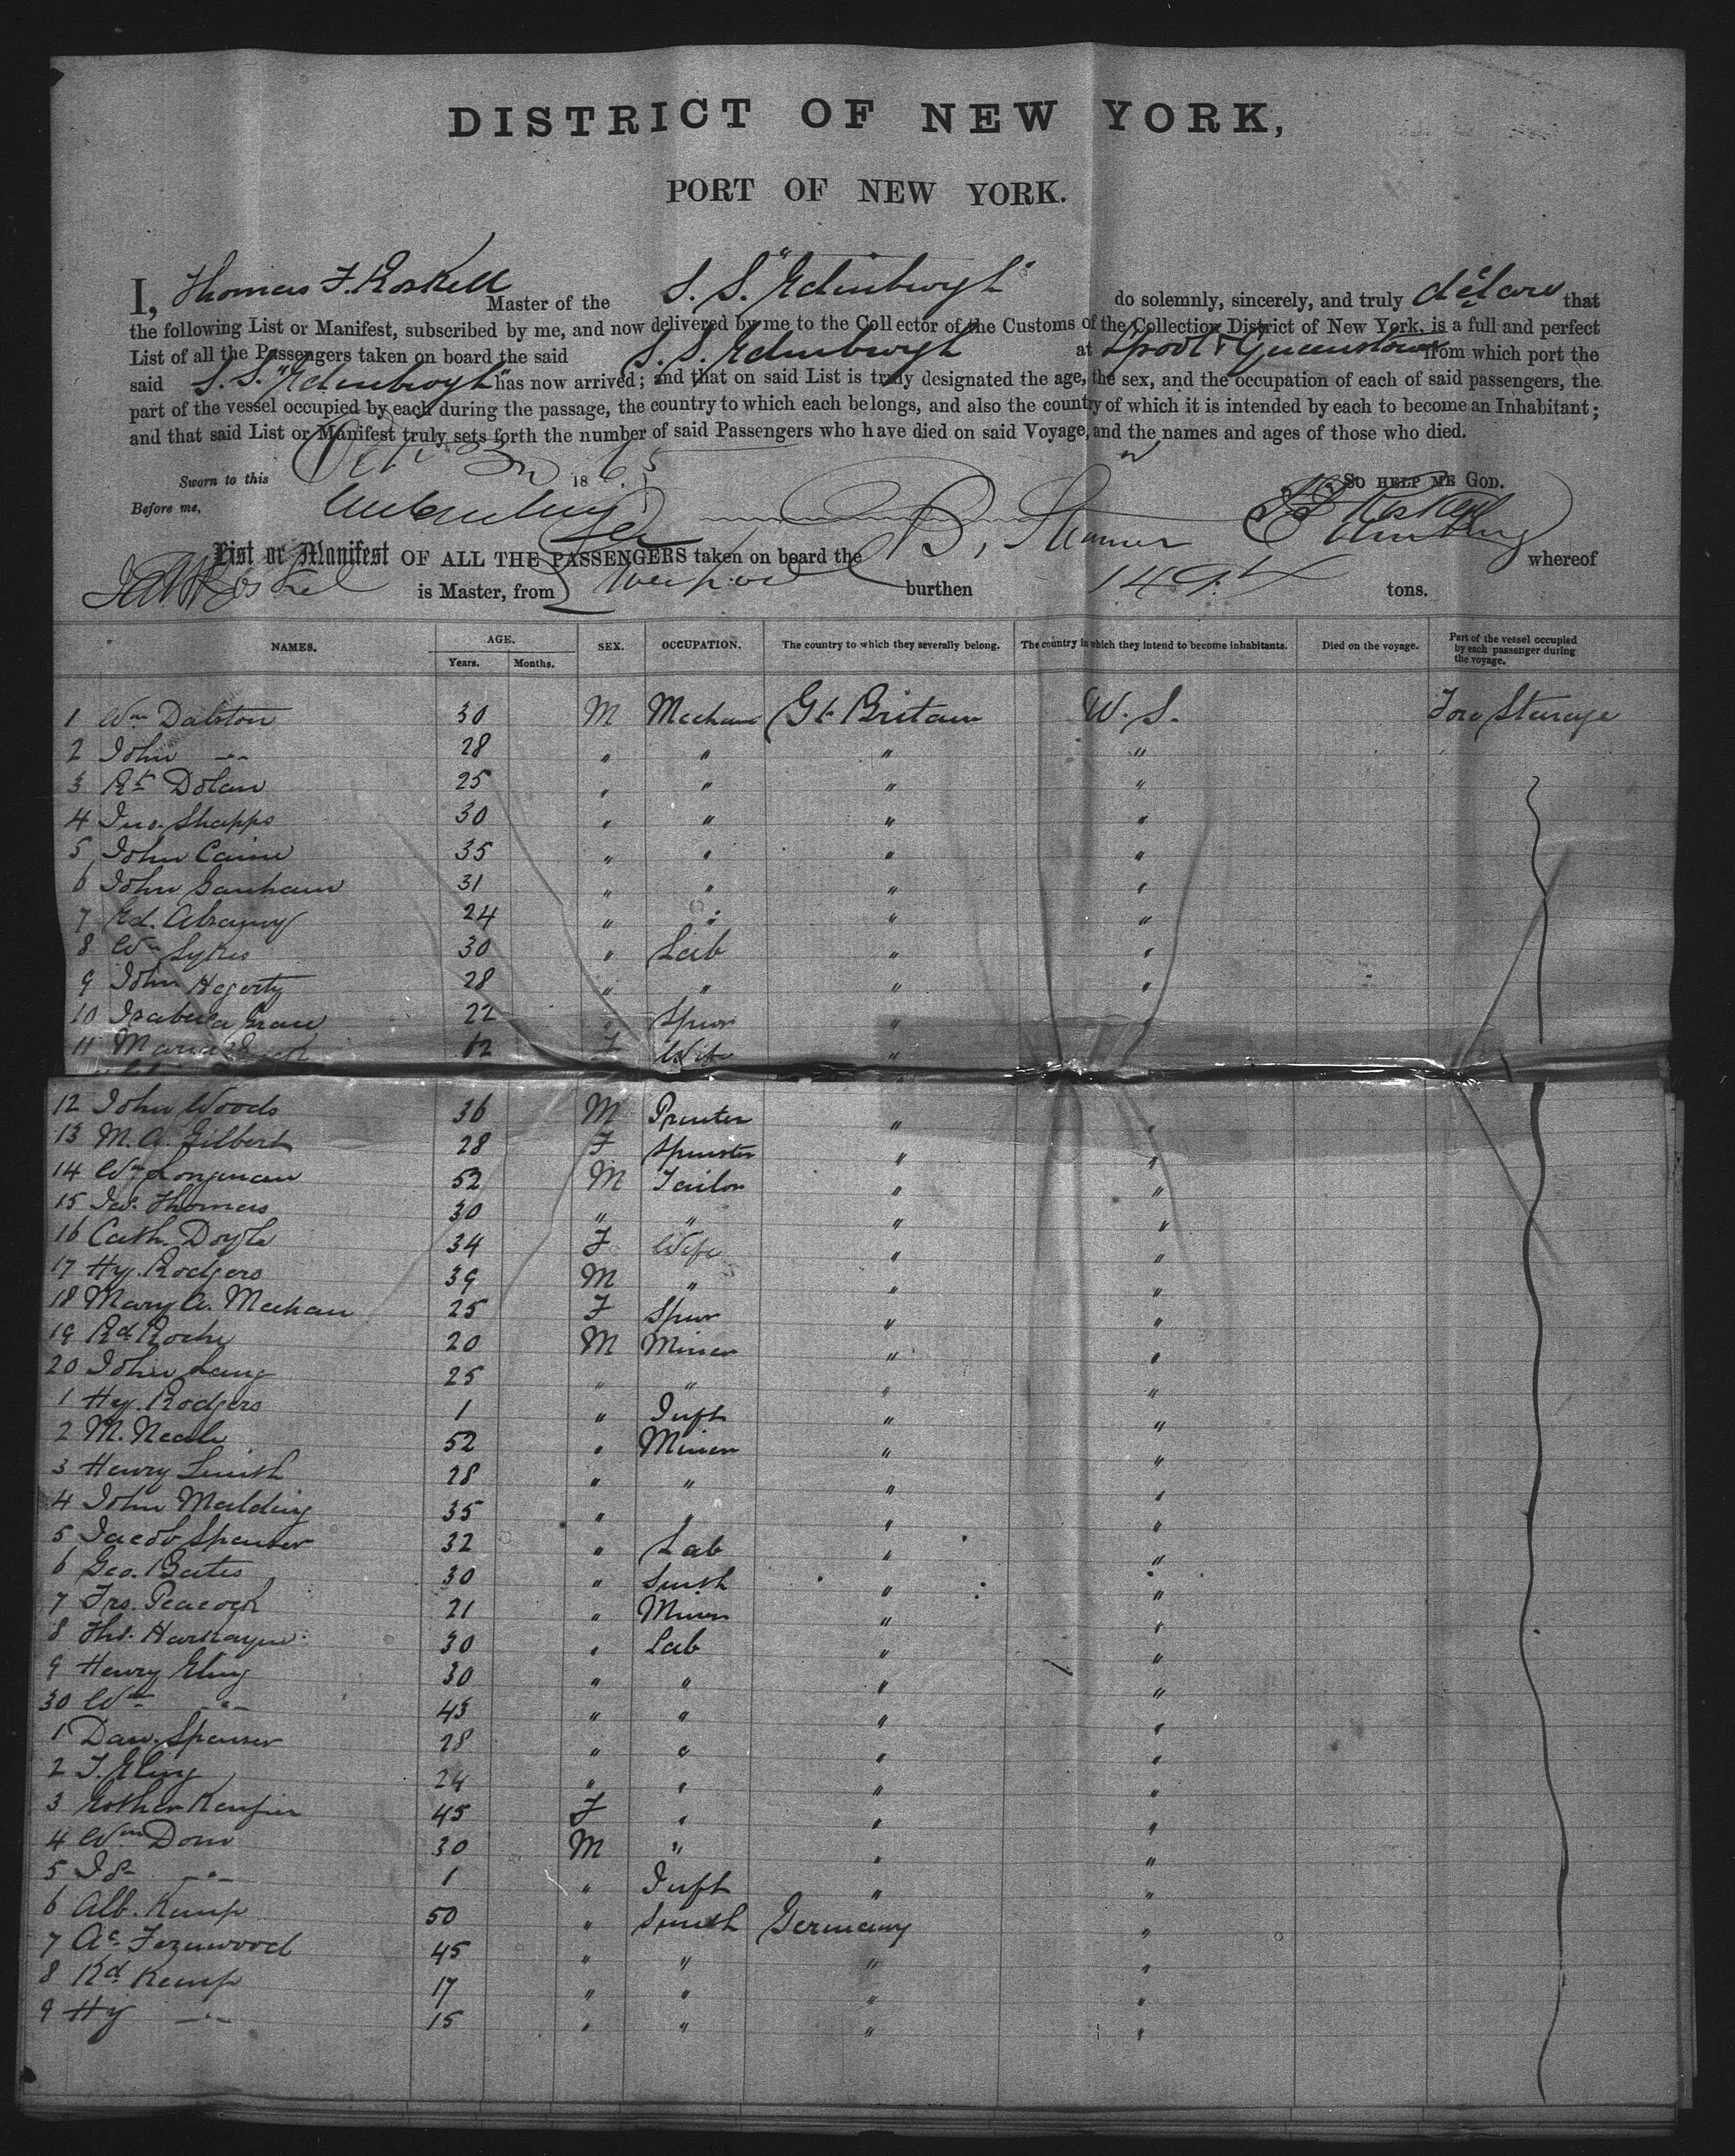 DISTRICT OF NEW YORK,
PORT OF NEW YORK.
I, Thomas F. Roskell Master of the S. S. "Edinburgh" do solemnly, sincerely, and truly declare that
the following List or Manifest, subscribed by me, and now delivered by me to the Collector of the Customs of the Collection District of New York, is a full and perfect
List of all the Passengers taken on board the said S. S. Edinburgh at Lpool & Queenstown from which port the
said S. S. "Edinburgh" has now arrived; and that on said List is truly designated the age, the sex, and the occupation of each of said passengers, the
part of the vessel occupied by each during the passage, the country to which each belongs, and also the country of which it is intended by each to become an Inhabitant;
and that said List or Manifest truly sets forth the number of said Passengers who have died on said Voyage, and the names and ages of those who died.
Sworn to this 1865 So HELP ME GOD.
Before me,
List or Manifest OF ALL THE PASSENGERS taken on board the B. Steamer Edinburg whereof
is Master, from Liverpool burthen tons.
NAMES. AGE. SEX. OCCUPATION. The country to which they severally belong. The country in which they intend to become inhabitants. Died on the voyage. Part of the vessel occupied by each passenger during the voyage.
Years. Months.
1 Wm Dalston 30 M Mechanc Gt Britain U. S. Fore Sturage
2 John -"- 28 " " " "
3 Rt Dolan 25 " " " "
4 Jno. Shapps 30 " " " "
5 John Caine 35 " " " "
6 John Ganham 31 " " " "
7 Ed. 24 " " " "
8 Wm Sykes 30 " Lab " "
9 John Hegerty 28 " " " "
10 Isabella 22 " Spnr "
11 Maria F Wife "
12 John Woods 36 M Printer " "
13 M. A. Gilbert 28 F Spinster " "
14 Wm Longman 52 M Tailor " "
15 Jas. Thomas 30 " " " "
16 Cath. Doyle 34 F Wife " "
17 Hy. Rodgers 39 M " " "
18 Mary A. Meehan 25 F Spnr " "
19 Rd Roche 20 M Miner " "
20 John Lang 25 " " " "
1 Hy. Rodgers 1 " Inft " "
2 M. Neale 52 " Miner " "
3 Henry Smith 28 " " " "
4 John Malding 35 " " " "
5 Jacob Spenser 32 " Lab " "
6 Geo. Bates 30 " Smith " "
7 Frs. Peacock 21 " Miner " "
8 Ths. 30 " Lab " "
9 Henry Eling 30 " " " "
30 Wm -"- 43 " " " "
1 Dan. Spenser 28 " " " "
2 J. Eling 24 " " " "
3 Esther 45 F " " "
4 Wm Dom 30 M " " "
5 -"- 1 " Inft " "
6 Alb. Kemp 50 " Smith Germany "
7 45 " " " "
8 Rd Kemp 17 " " " "
9 Hy -"- 15 " " " "